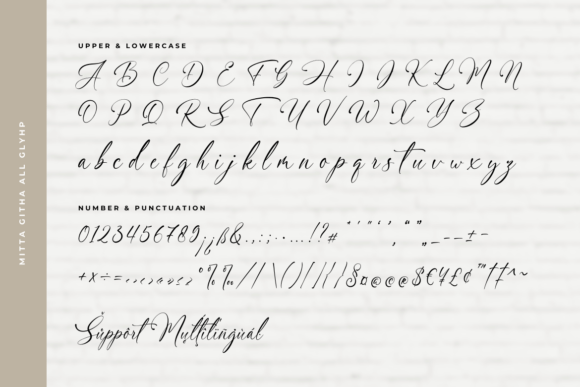 MITTA GITHA ALL GLYHP
UPPER & LOWERCASE
A B C D E F G H I J K L M N
O P Q R S T U V W X Y Z
a b c d e f g h i j k l m n o p q r s t u v w x y z
NUMBER & PUNCTUATION
0 1 2 3 4 5 6 7 8 9 ¡ ¿ ß & . , : ; · … ! ? #
+ × ÷ =
Support Multilingual